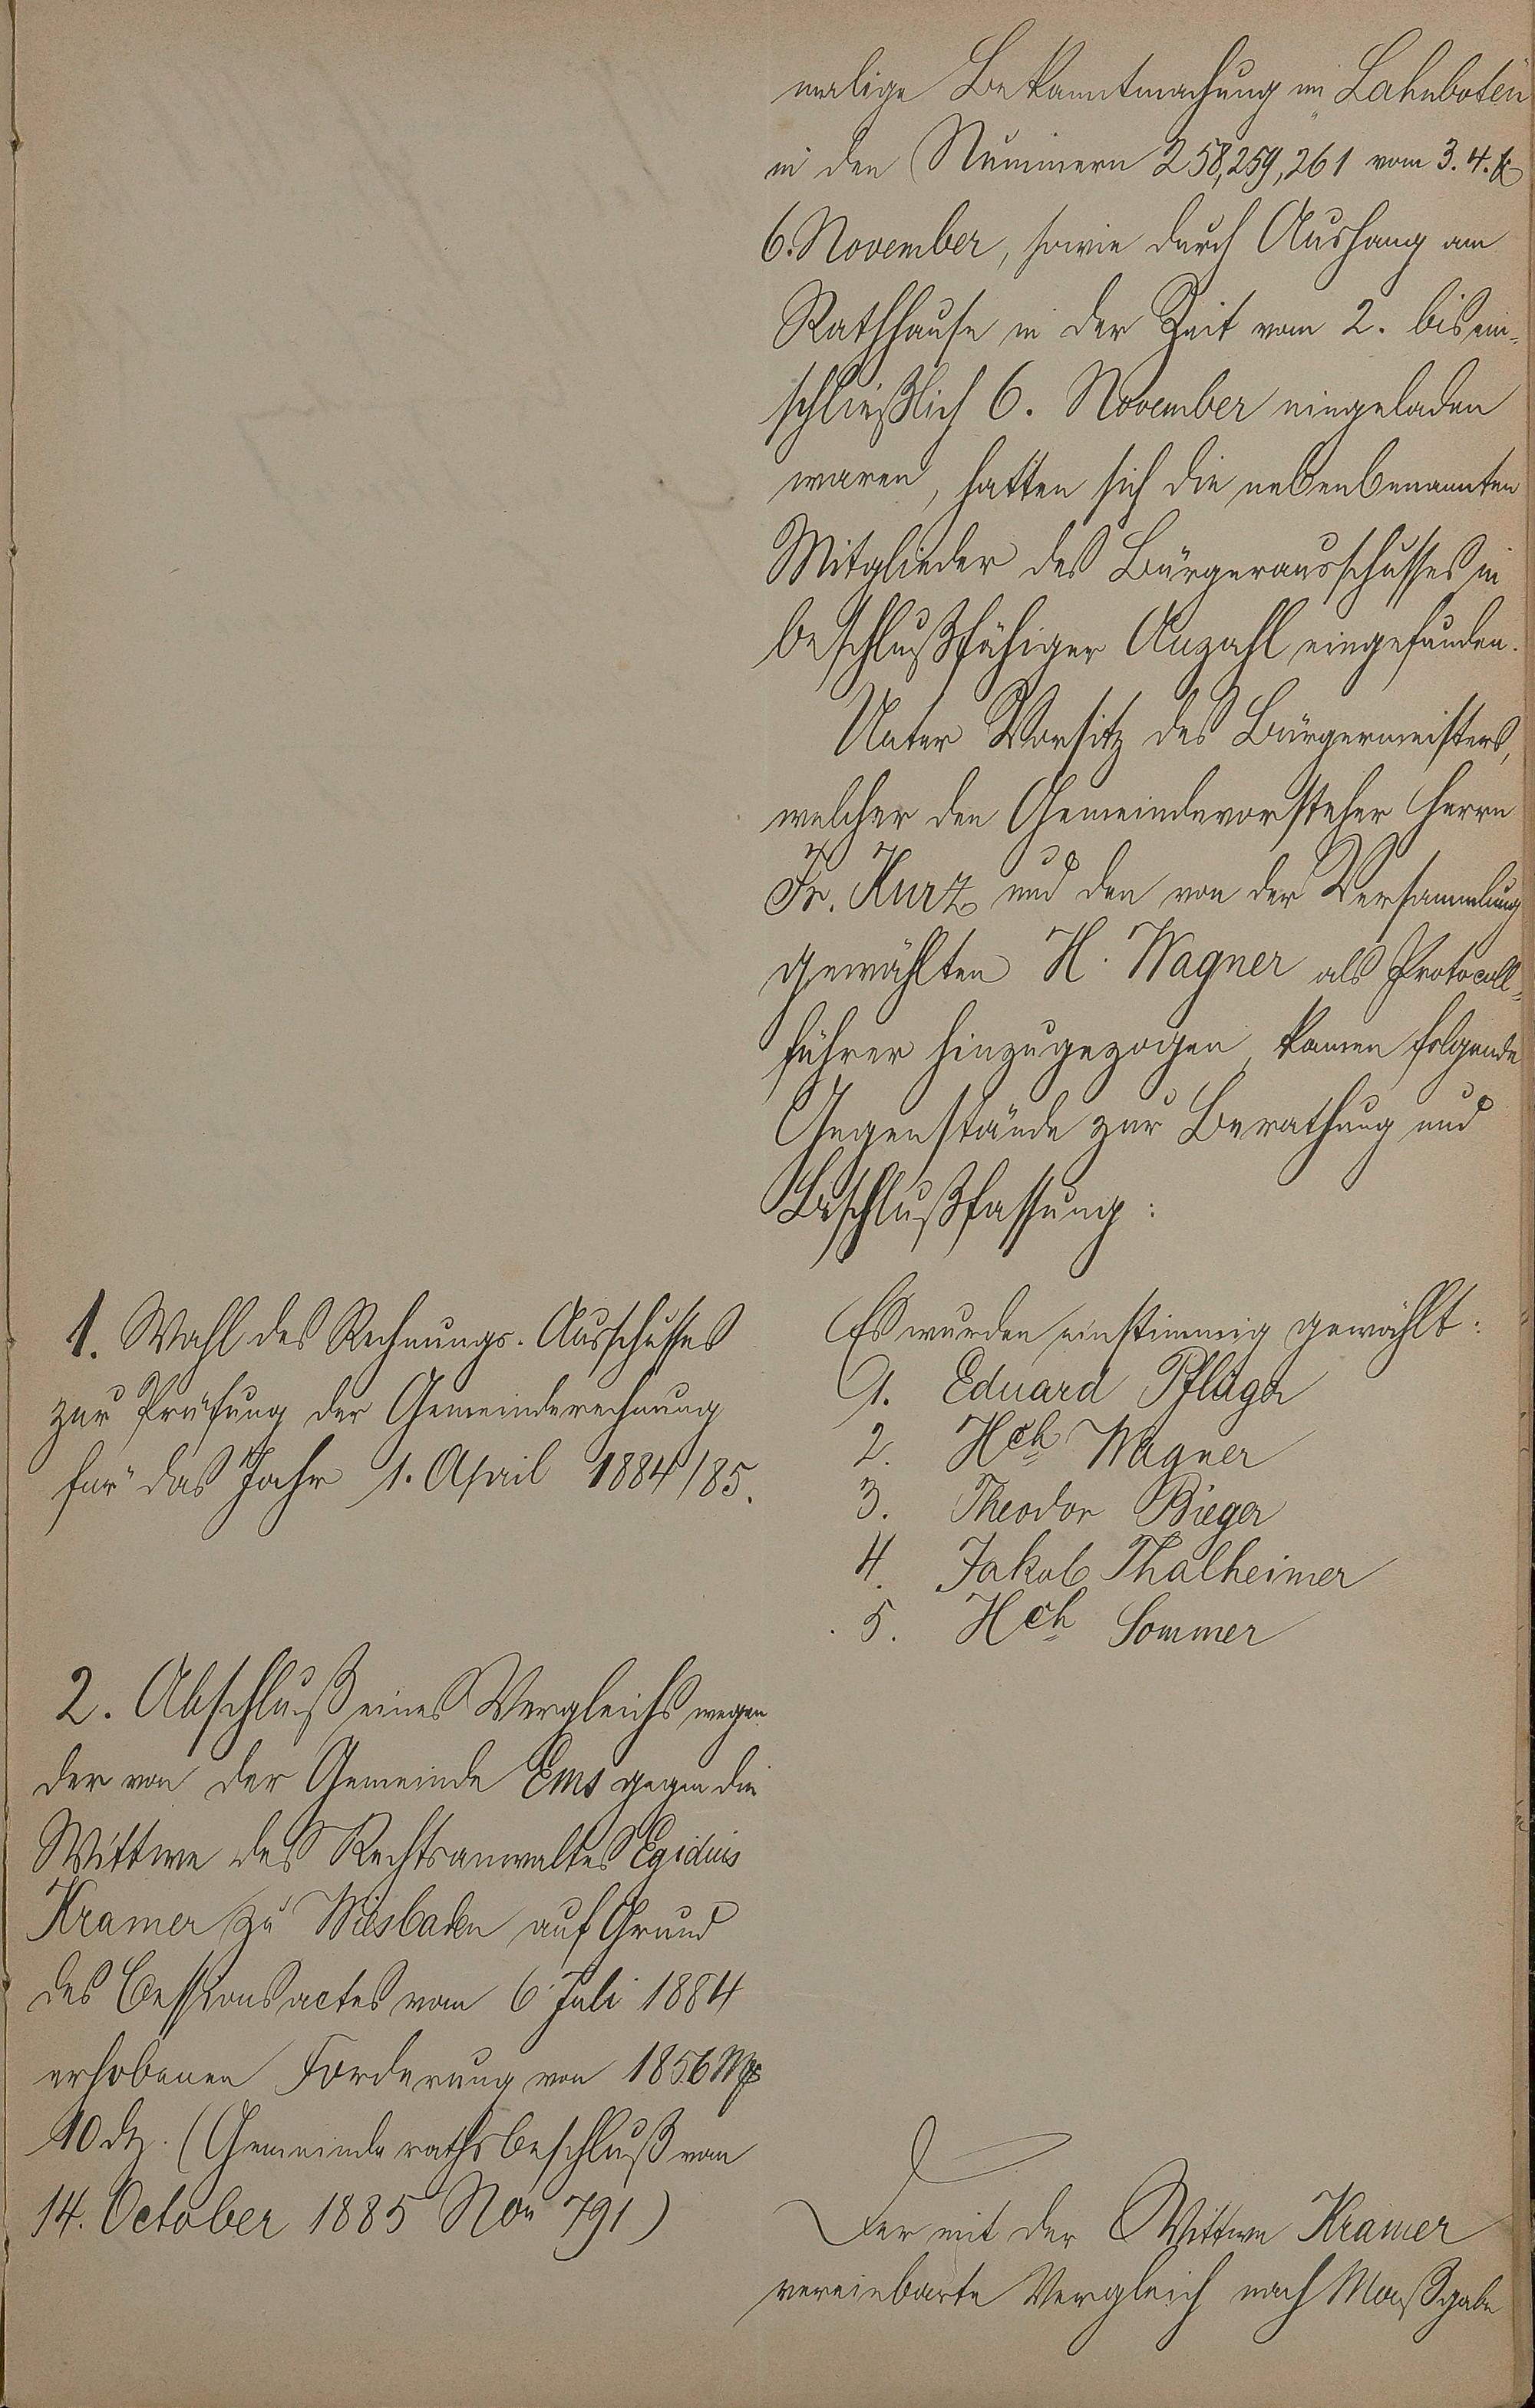 malige Bekanntmachung im "Lahnboten"
in den Nummern 258, 259, 261 vom 3. 4. &
6. November, sowie durch Aushang am
Rathhause in der Zeit vom 2. bis ein-
schließlich 6. November eingeladen
waren, hatten sich die nebenbenannten
Mitglieder des Bürgerausschusses in
beschlußfähiger Anzahl eingefunden.
Unter Vorsitz des Bürgermeisters,
welcher den Gemeindevorsteher Herrn
Fr. Kurz und den von der Versammlung
gewählten H. Wagner als Protocoll-
führer hinzugezogen, kamen folgende
Gegenstände zur Berathung und
Beschlußfassung:
1. Wahl des Rechnungs-Ausschusses
zur Prüfung der Gemeinderechnung
für das Jahr 1. April 1884/85.
Es wurden einstimmig gewählt:
1. Eduard Pflüger
2. Hch Wagner
3. Theodor Bieger
4. Jakob Thalheimer
5. Hch Sommer
2. Abschluß eines Vergleichs wegen
der von der Gemeinde Ems gegen die
Wittwe des Rechtsanwaltes Egidius
Kramer zu Wiesbaden auf Grund
des Cessionsactes vom 6 Juli 1884
erhobenen Forderung von 1856 M
10 d. (Gemeinderathsbeschluß vom
14. October 1885 No 791)
Der mit der Wittwe Kramer
vereinbarte Vergleich nach Maßgabe